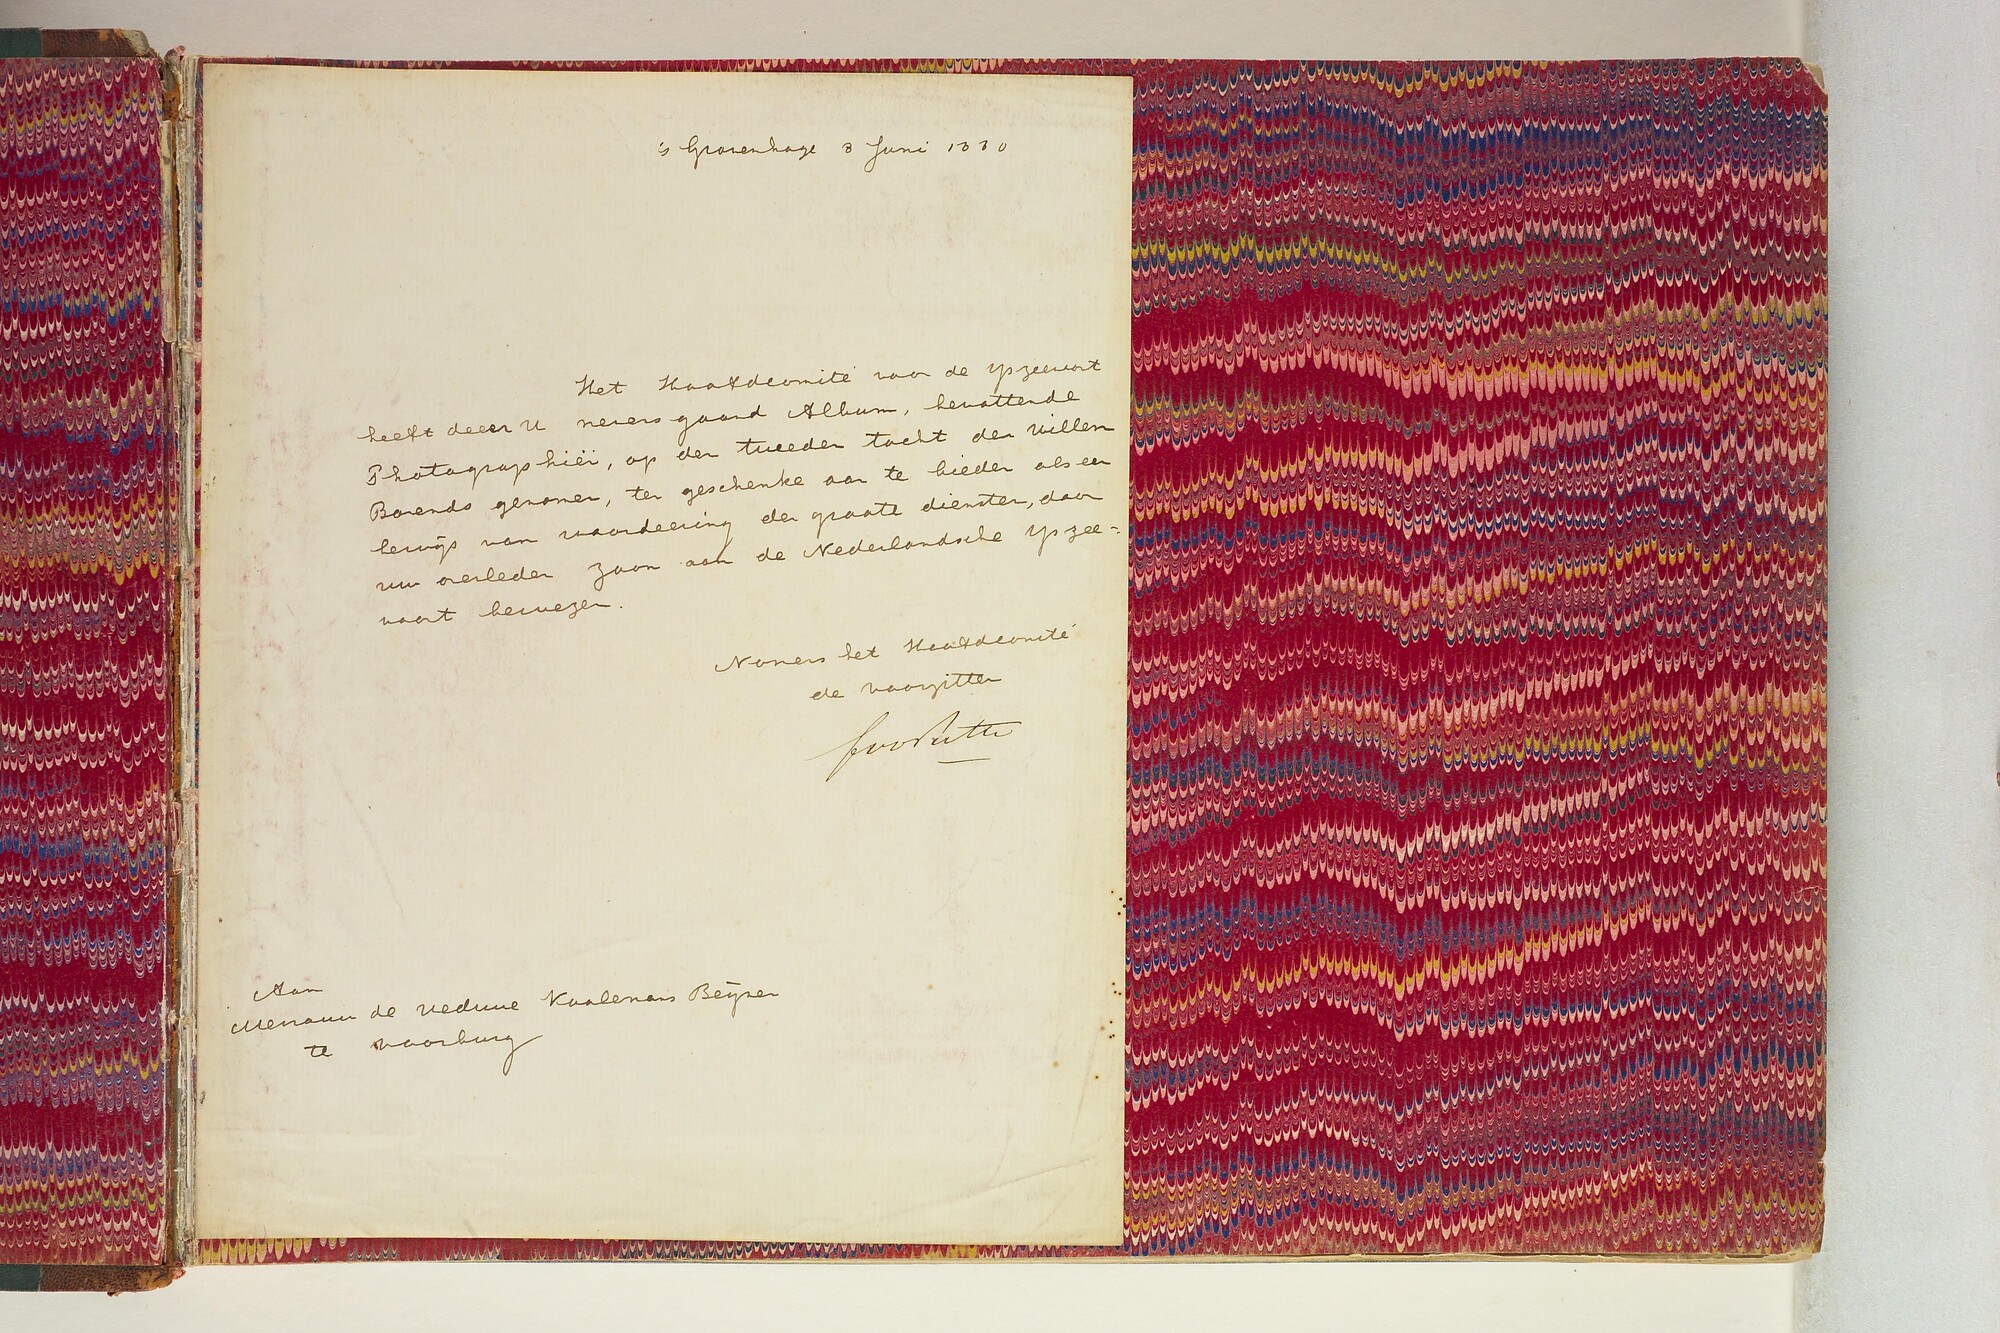 's Gravenhage 8 Juni 1880
Het Hoofdcomité voor de Yszeevaart
heeft de eer U nevensgaand Album, bevattende
Photographiën, op den tweeden tocht der Willem
Barends genomen, ten geschenke aan te bieden als een
bewijs van waardeering der groote diensten, door
uw overleden zoon aan de Nederlandsche Yszee=
vaart bewezen.
Namens het Hoofdcomité
de voorzitter
Aan
Mevrouw de Weduwe Koolemans Beijnen
te Voorburg